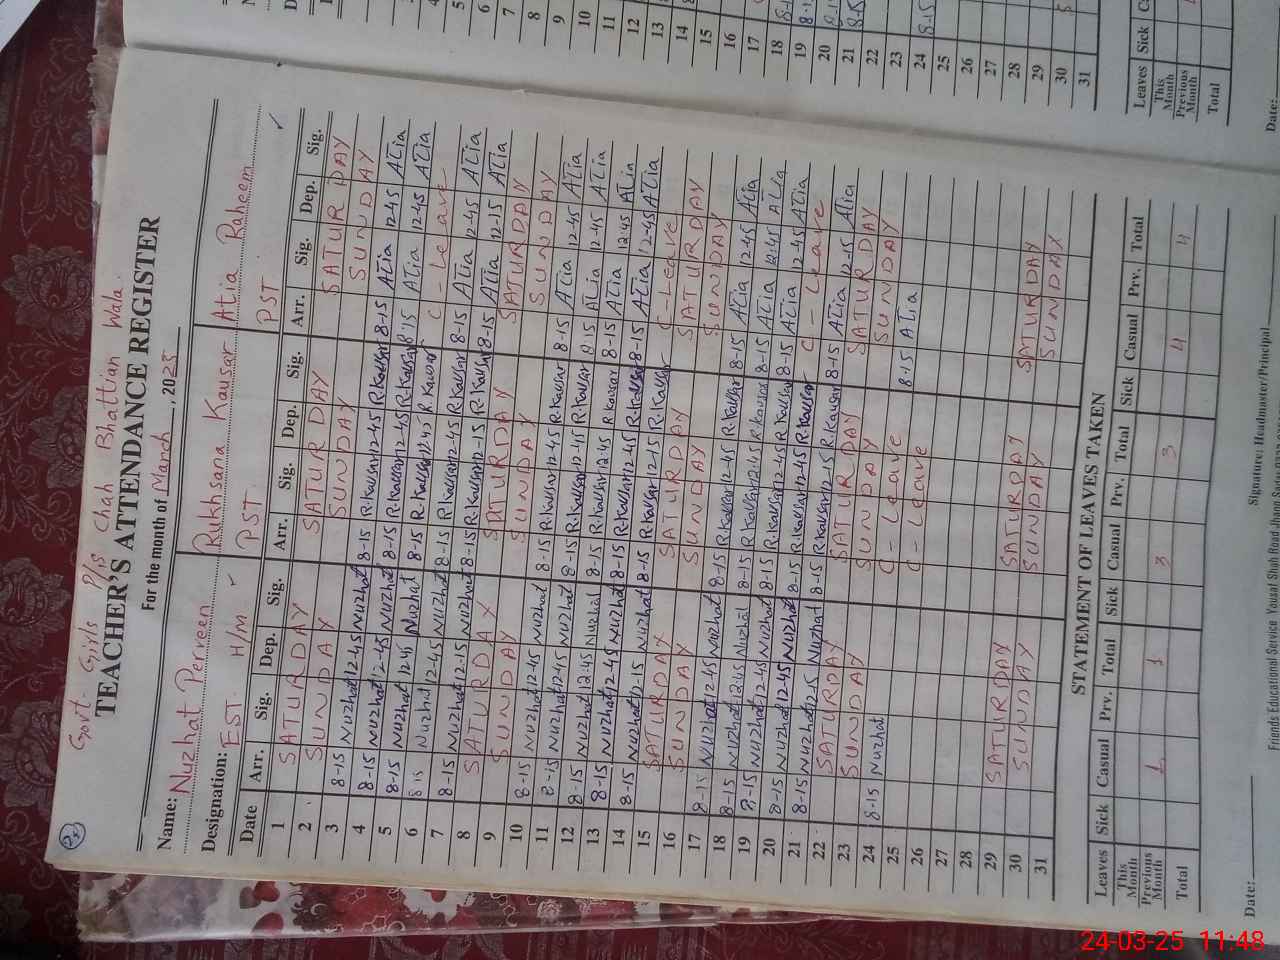 Govt. Girls P/S Chah Bhattian Wala
TEACHER'S ATTENDANCE REGISTER
For the month of March, 2025
Name: Nuzhat Perveen Rukhsana Kausar Atia Raheem
Designation: EST H/M PST PST
Date Arr. Sig. Dep. Sig. Arr. Sig. Dep. Sig. Arr. Sig. Dep. Sig.
1 SATURDAY SATURDAY SATURDAY
2 SUNDAY SUNDAY SUNDAY
3 8-15 Nuzhat 12-45 Nuzhat 8-15 R.Kausar 12-45 R.Kausar 8-15 Atia 12-45 Atia
4 8-15 Nuzhat 12-45 Nuzhat 8-15 R.Kausar 12-45 R.Kausar 8-15 Atia 12-45 Atia
5 8-15 Nuzhat 12-45 Nuzhat 8-15 R.Kausar 12-45 R.Kausar C-Leave
6 8-15 Nuzhat 12-45 Nuzhat 8-15 R.Kausar 12-45 R.Kausar 8-15 Atia 12-45 Atia
7 8-15 Nuzhat 12-15 Nuzhat 8-15 R.Kausar 12-15 R.Kausar 8-15 Atia 12-15 Atia
8 SATURDAY SATURDAY SATURDAY
9 SUNDAY SUNDAY SUNDAY
10 8-15 Nuzhat 12-45 Nuzhat 8-15 R.Kausar 12-45 R.Kausar 8-15 Atia 12-45 Atia
11 8-15 Nuzhat 12-45 Nuzhat 8-15 R.Kausar 12-45 R.Kausar 8-15 Atia 12-45 Atia
12 8-15 Nuzhat 12-45 Nuzhat 8-15 R.Kausar 12-45 R.Kausar 8-15 Atia 12-45 Atia
13 8-15 Nuzhat 12-45 Nuzhat 8-15 R.Kausar 12-45 R.Kausar 8-15 Atia 12-45 Atia
14 8-15 Nuzhat 12-15 Nuzhat 8-15 R.Kausar 12-15 R.Kausar C-Leave
15 SATURDAY SATURDAY SATURDAY
16 SUNDAY SUNDAY SUNDAY
17 8-15 Nuzhat 12-45 Nuzhat 8-15 R.Kausar 12-45 R.Kausar 8-15 Atia 12-45 Atia
18 8-15 Nuzhat 12-45 Nuzhat 8-15 R.Kausar 12-45 R.Kausar 8-15 Atia 12-45 Atia
19 8-15 Nuzhat 12-45 Nuzhat 8-15 R.Kausar 12-45 R.Kausar 8-15 Atia 12-45 Atia
20 8-15 Nuzhat 12-45 Nuzhat 8-15 R.Kausar 12-45 R.Kausar C-Leave
21 8-15 Nuzhat 12-15 Nuzhat 8-15 R.Kausar 12-15 R.Kausar 8-15 Atia 12-15 Atia
22 SATURDAY SATURDAY SATURDAY
23 SUNDAY SUNDAY SUNDAY
24 8-15 Nuzhat C-Leave 8-15 Atia
25 C-Leave
26
27
28
29 SATURDAY SATURDAY SATURDAY
30 SUNDAY SUNDAY SUNDAY
31
STATEMENT OF LEAVES TAKEN
Leaves Sick Casual Prv. Total Sick Casual Prv. Total Sick Casual Prv. Total
This Month
Previous Month 1 1 3 3 4 4
Total
Date: Signature: Headmaster/Principal
Friends Educational Service Yousaf Shah Road Jhang Saddar
4
5
6
7
8
9
10
11
12
13
14
15
16
17
18 8-15
19 8-
20 8-15
21 8-5
22
23
24 8-15
25
26
27
28
29
30
31
Leaves Sick
This Month
Previous Month
Total
Date:
24-03-25 11:48